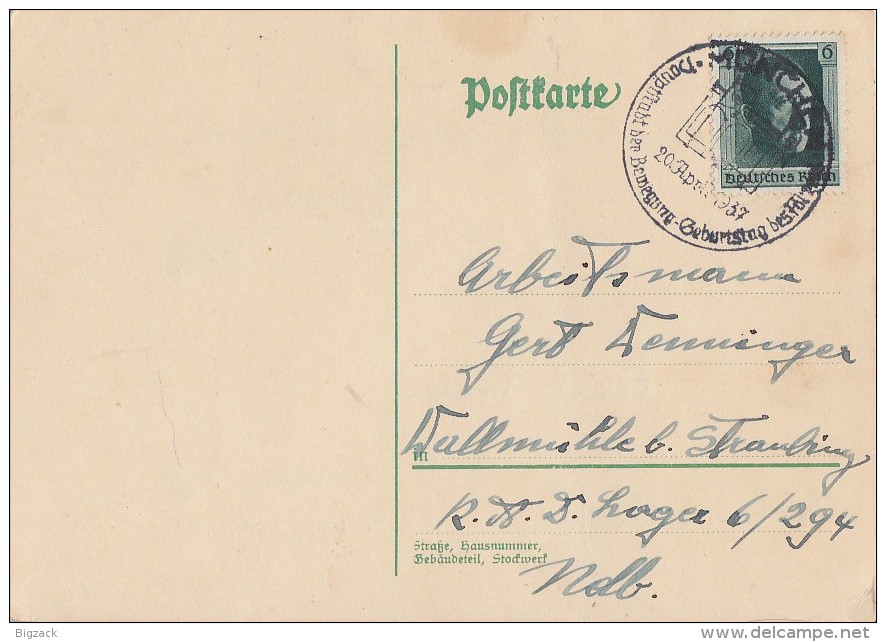 Postkarte
6
Deutsches Reich
MÜNCHEN
Hauptstadt der Bewegung - Geburtstag des
20. April 1937
Arbeitsmann
Gert Denninger
Wallmühle b. Straubing
in
R.A.D. Lager 6/294
Straße, Hausnummer,
Gebäudeteil, Stockwerk
Ndb.
Bigzack
www.delcampe.net